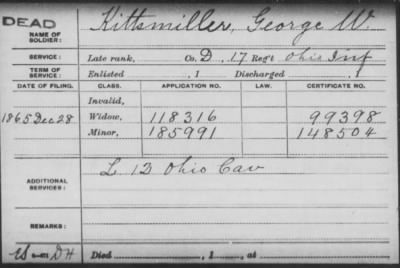 DEAD
NAME OF SOLDIER: Kittsmiller, George W.
SERVICE: Late rank, Co. D, 17 Reg't Ohio Inf
TERM OF SERVICE: Enlisted , 1 Discharged , 1
DATE OF FILING. CLASS. APPLICATION NO. LAW. CERTIFICATE NO.
Invalid,
1865 Dec 28 Widow, 118316 99398
Minor, 185991 148504
ADDITIONAL SERVICES: L 13 Ohio Cav
REMARKS:
Died , 1 , at